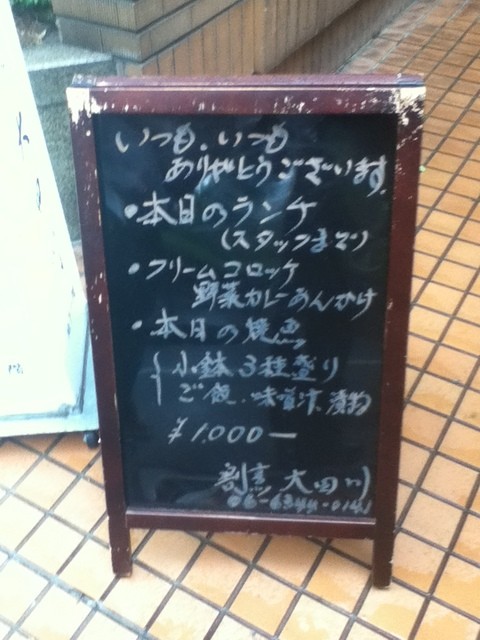 いつも、いつも
ありがとうございます
・本日のランチ
(スタッフまで)
・クリームコロッケ
野菜カレーあんかけ
・本日の焼魚
小鉢3種盛り
ご飯、味噌汁、漬物
¥1,000ー
割烹 太田川
06-6344-0141